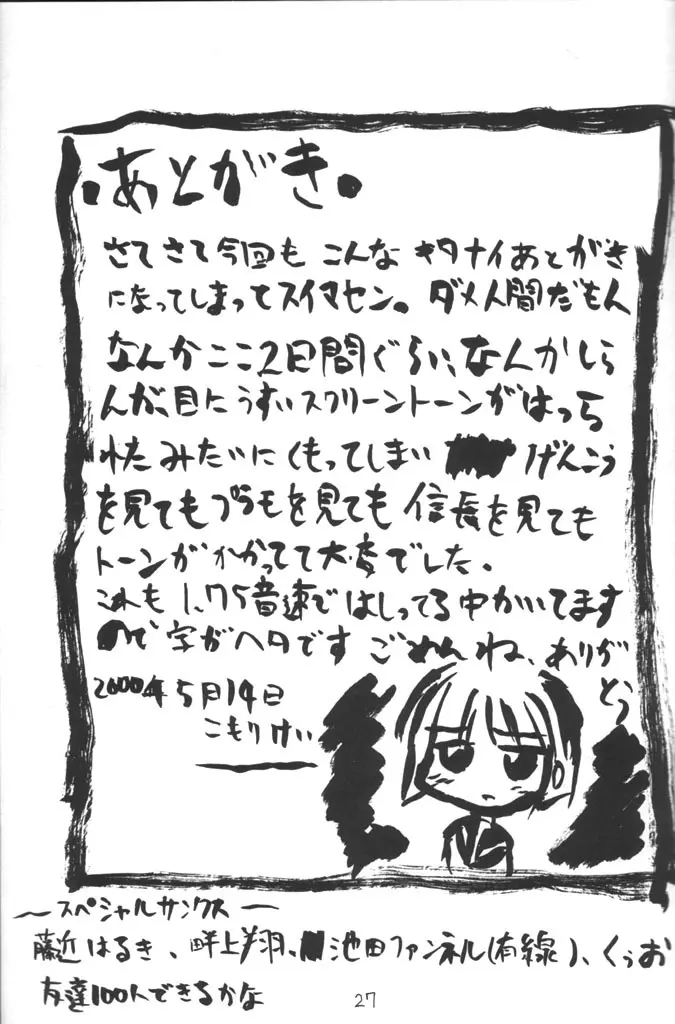 .あとがき.
さてさて今回も こんな キタナイあとがき
になってしまってスイマセン。 ダメ人間だもん
なんかここ2日間ぐらい、なんかしら
んが、目にうすいスクリーントーンがはっら
れたみたいにくもってしまい げんこう
を見てもプラモを見ても 信長を見ても
トーンがかかってて大変でした.
これも 1.75音速ではしってる中かいてます
ので字がヘタです ごめんね、ありが
とう
2000年5月14日
こもりけい
〜スペシャルサンクス〜
藤近はるき、畔上翔、池田ファンネル(有線)、くぅお
友達100人できるかな
27